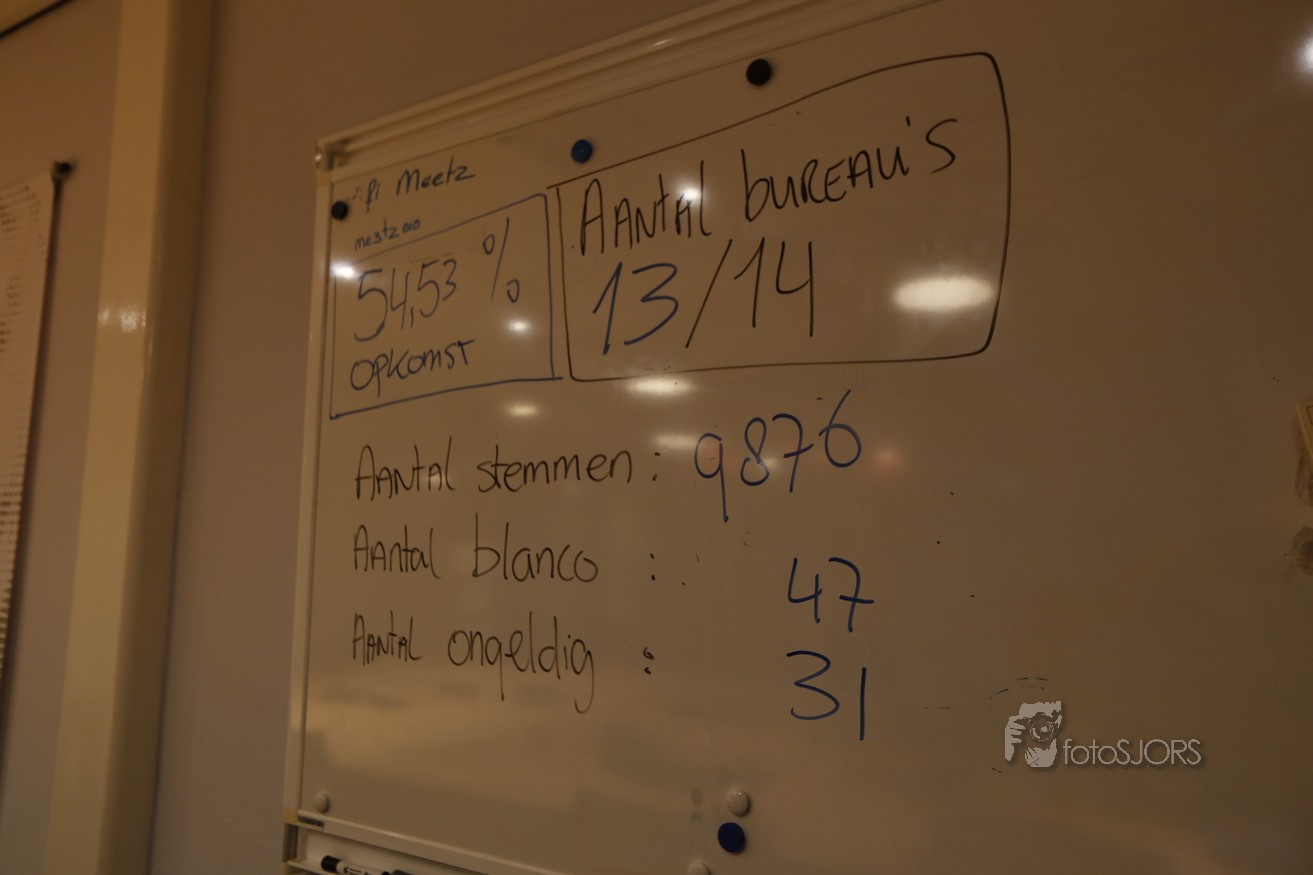 Wifi Meetz
meetz010
54,53 %
opkomst
AANTAL bUREAU'S
13/14
AANTAL stemmen: 9876
AAntal blanco : 47
AANTAL ongeldig : 31
fotoSJORS